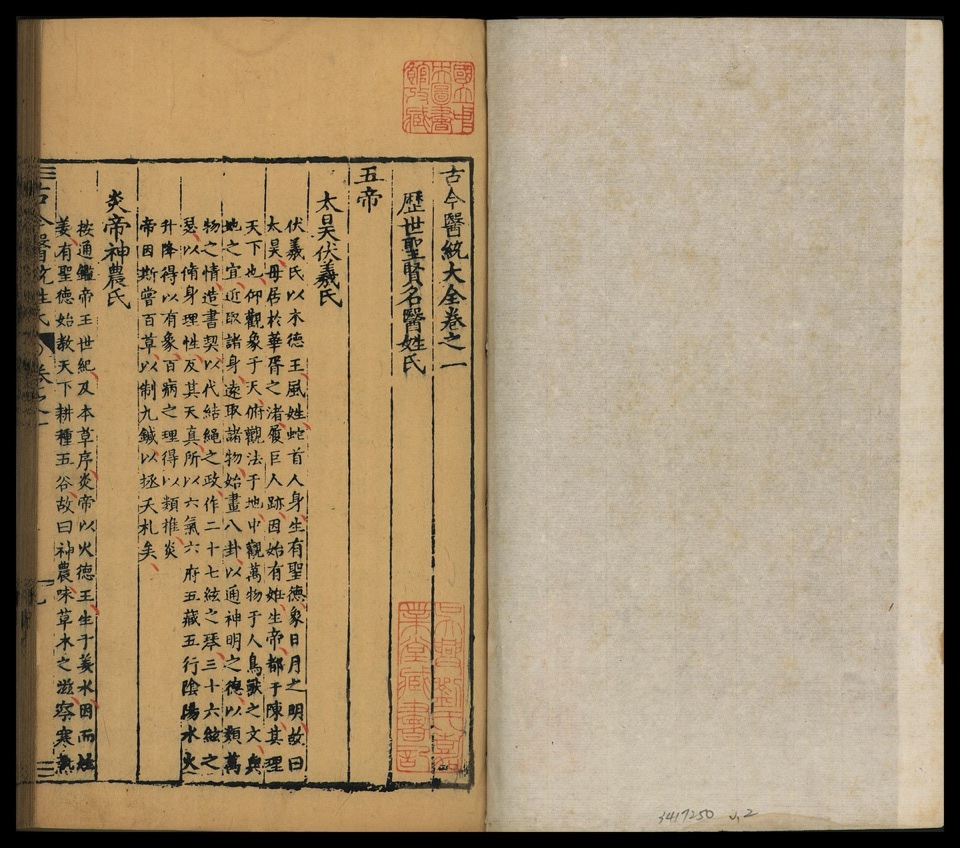 古今醫統大全卷之一
歷世聖賢名醫姓氏
五帝
太昊伏羲氏
伏羲氏以木德王風姓蛇首人身生有聖德象日月之明故曰
太昊母居於華胥之渚履巨人跡因始有娠生帝都于陳其理
天下也仰觀象于天俯觀法于地中觀萬物于人鳥獸之文與
地之宜近取諸身遠取諸物始畫八卦以通神明之德以類萬
物之情造書契以代結繩之政作二十七絃之琴三十六絃之
瑟以脩身理性反其天真所以六氣六府五藏五行陰陽水火
升降得以有象百病之理得以類推炎
帝因斯嘗百草以制九鍼以拯夭札矣
炎帝神農氏
按通鑑帝王世紀及本草序炎帝以火德王生于姜水因而姓
姜有聖德始教天下耕種五谷故曰神農味草木之滋察寒熱
古今醫統姓氏 卷之一
國立中
央圖書
館收藏
吳興劉氏嘉
業堂藏書記
3417250 v.2